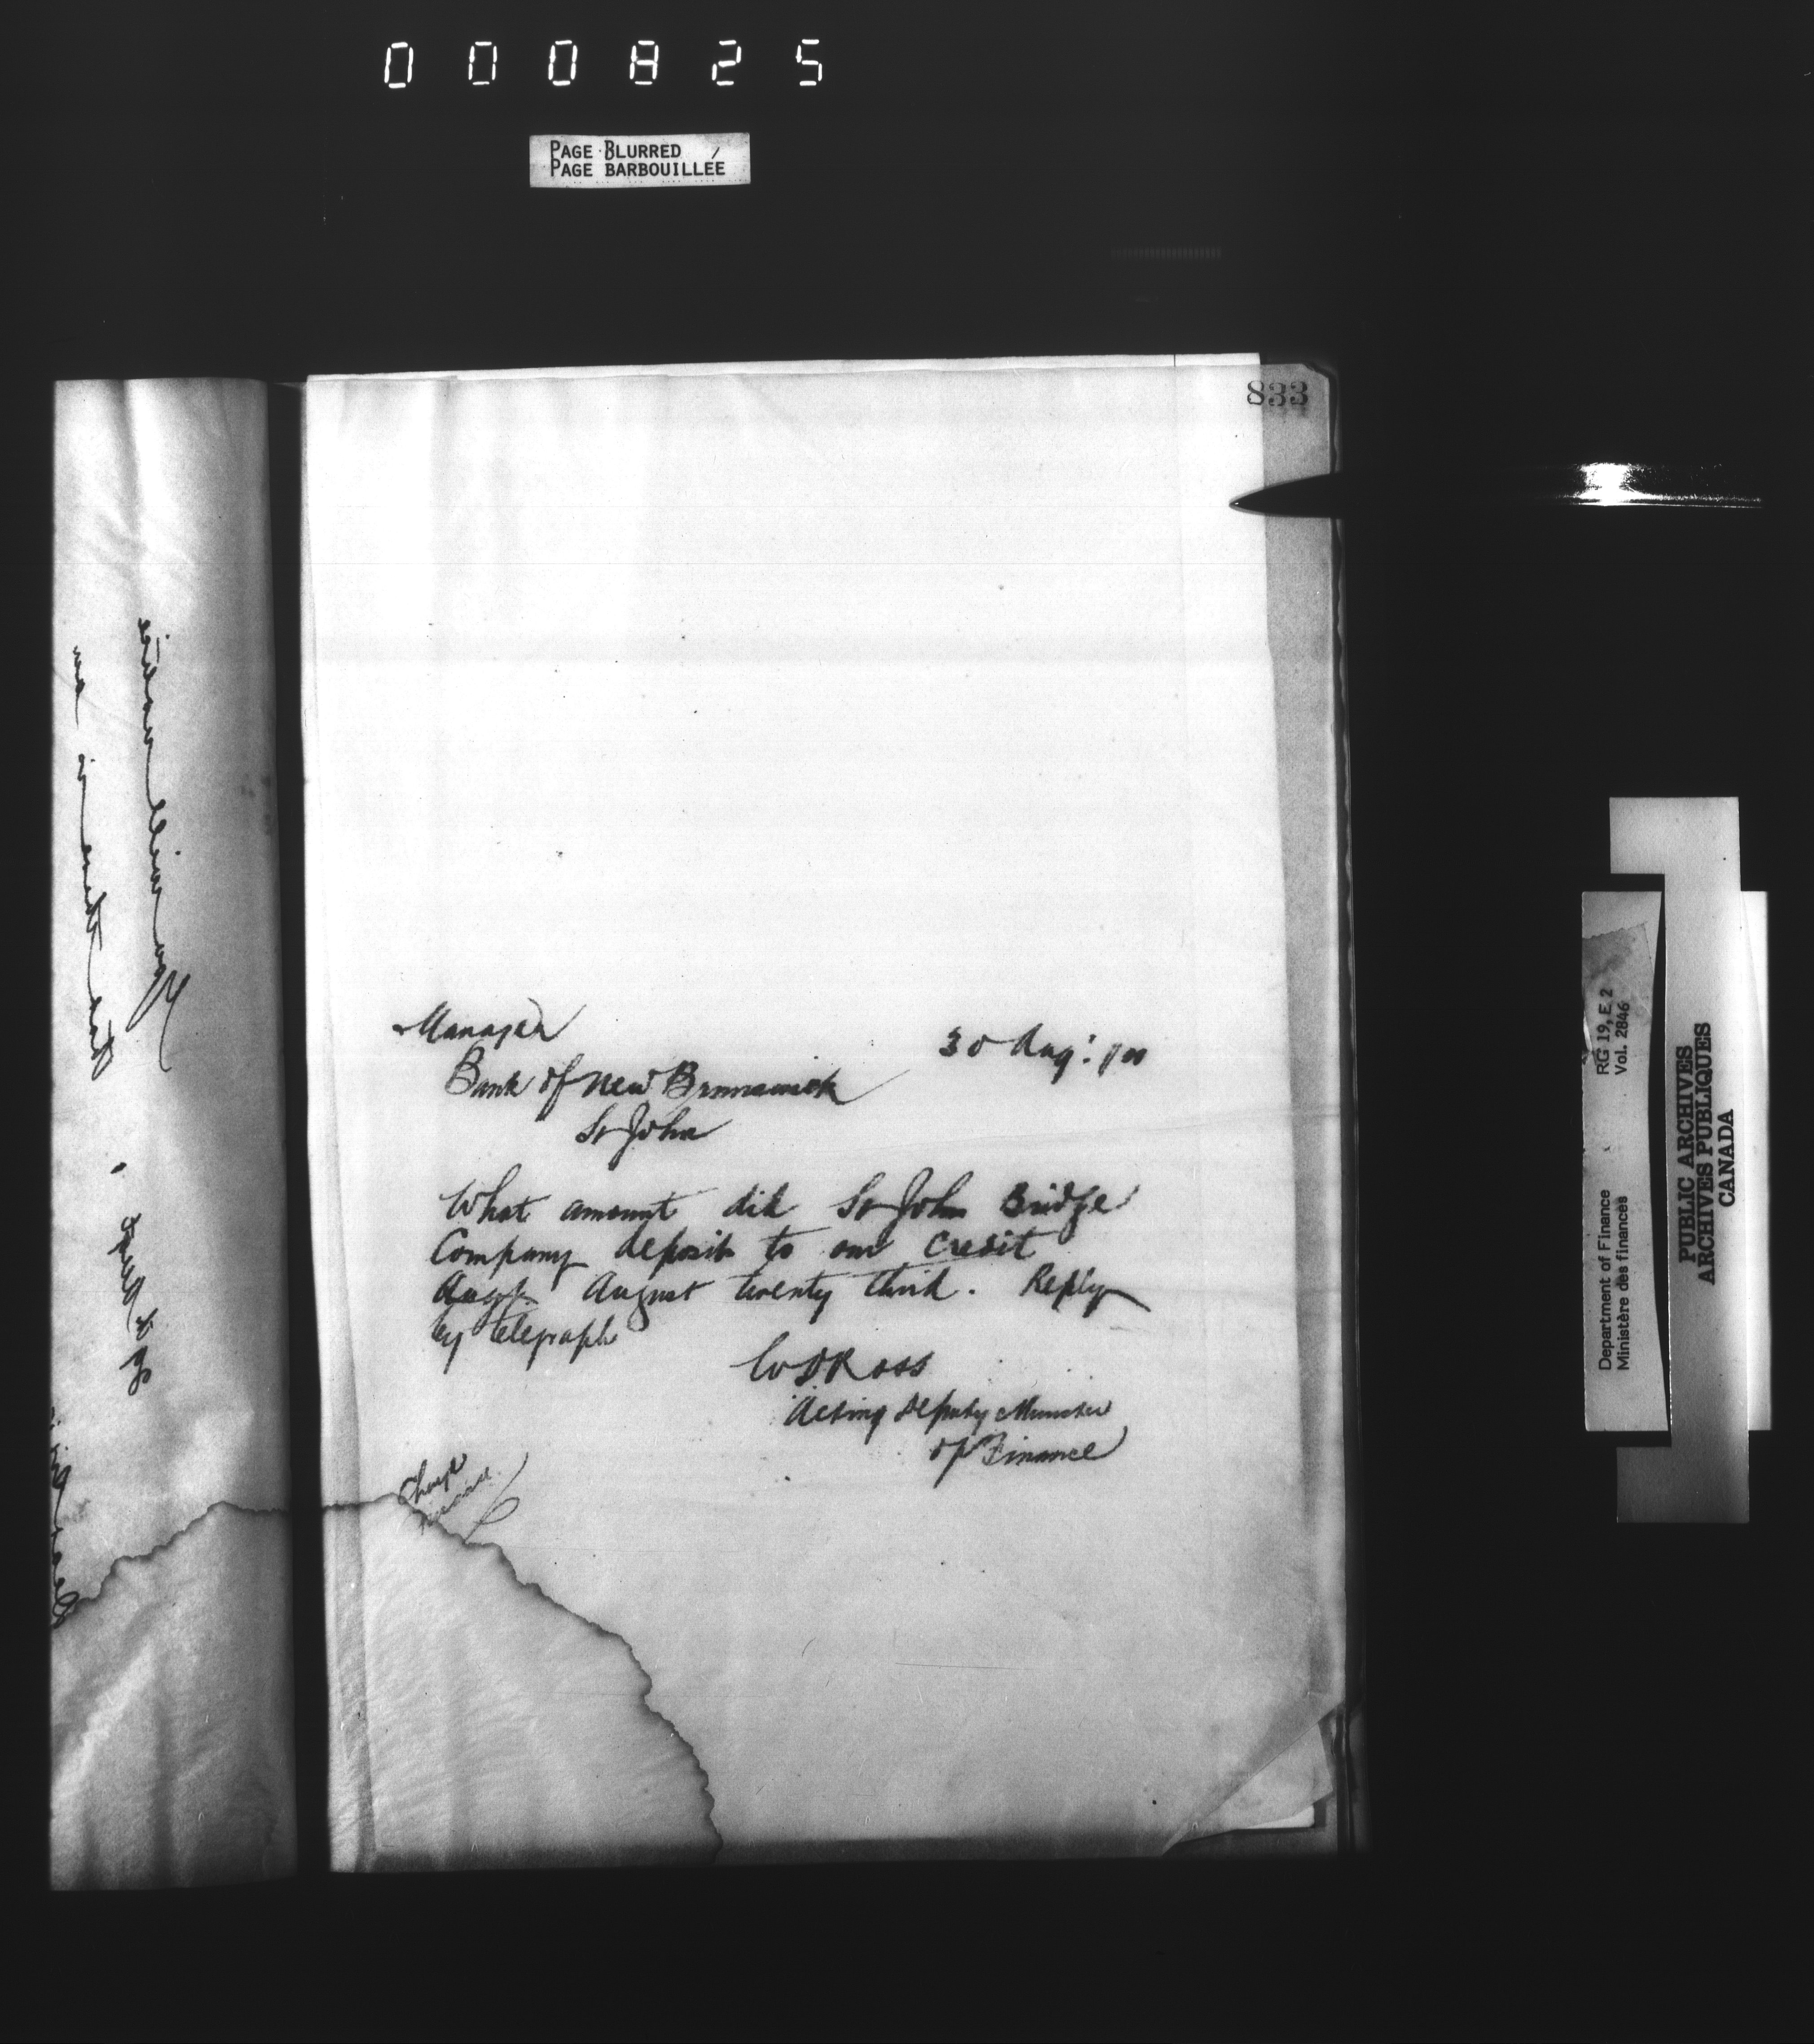 000825
PAGE BLURRED
PAGE BARBOUILLÉE
833
Manager
30 Aug:
Bank of New Brunswick
St John
What amount did St John Bridge
Company deposit to our credit
August twenty third. Reply
by telegraph
W D Ross
Acting Deputy Minister
of Finance
Charge
You will notice
that there is an
Department of Finance
Ministère des finances
RG 19, E 2
Vol. 2846
PUBLIC ARCHIVES
ARCHIVES PUBLIQUES
CANADA